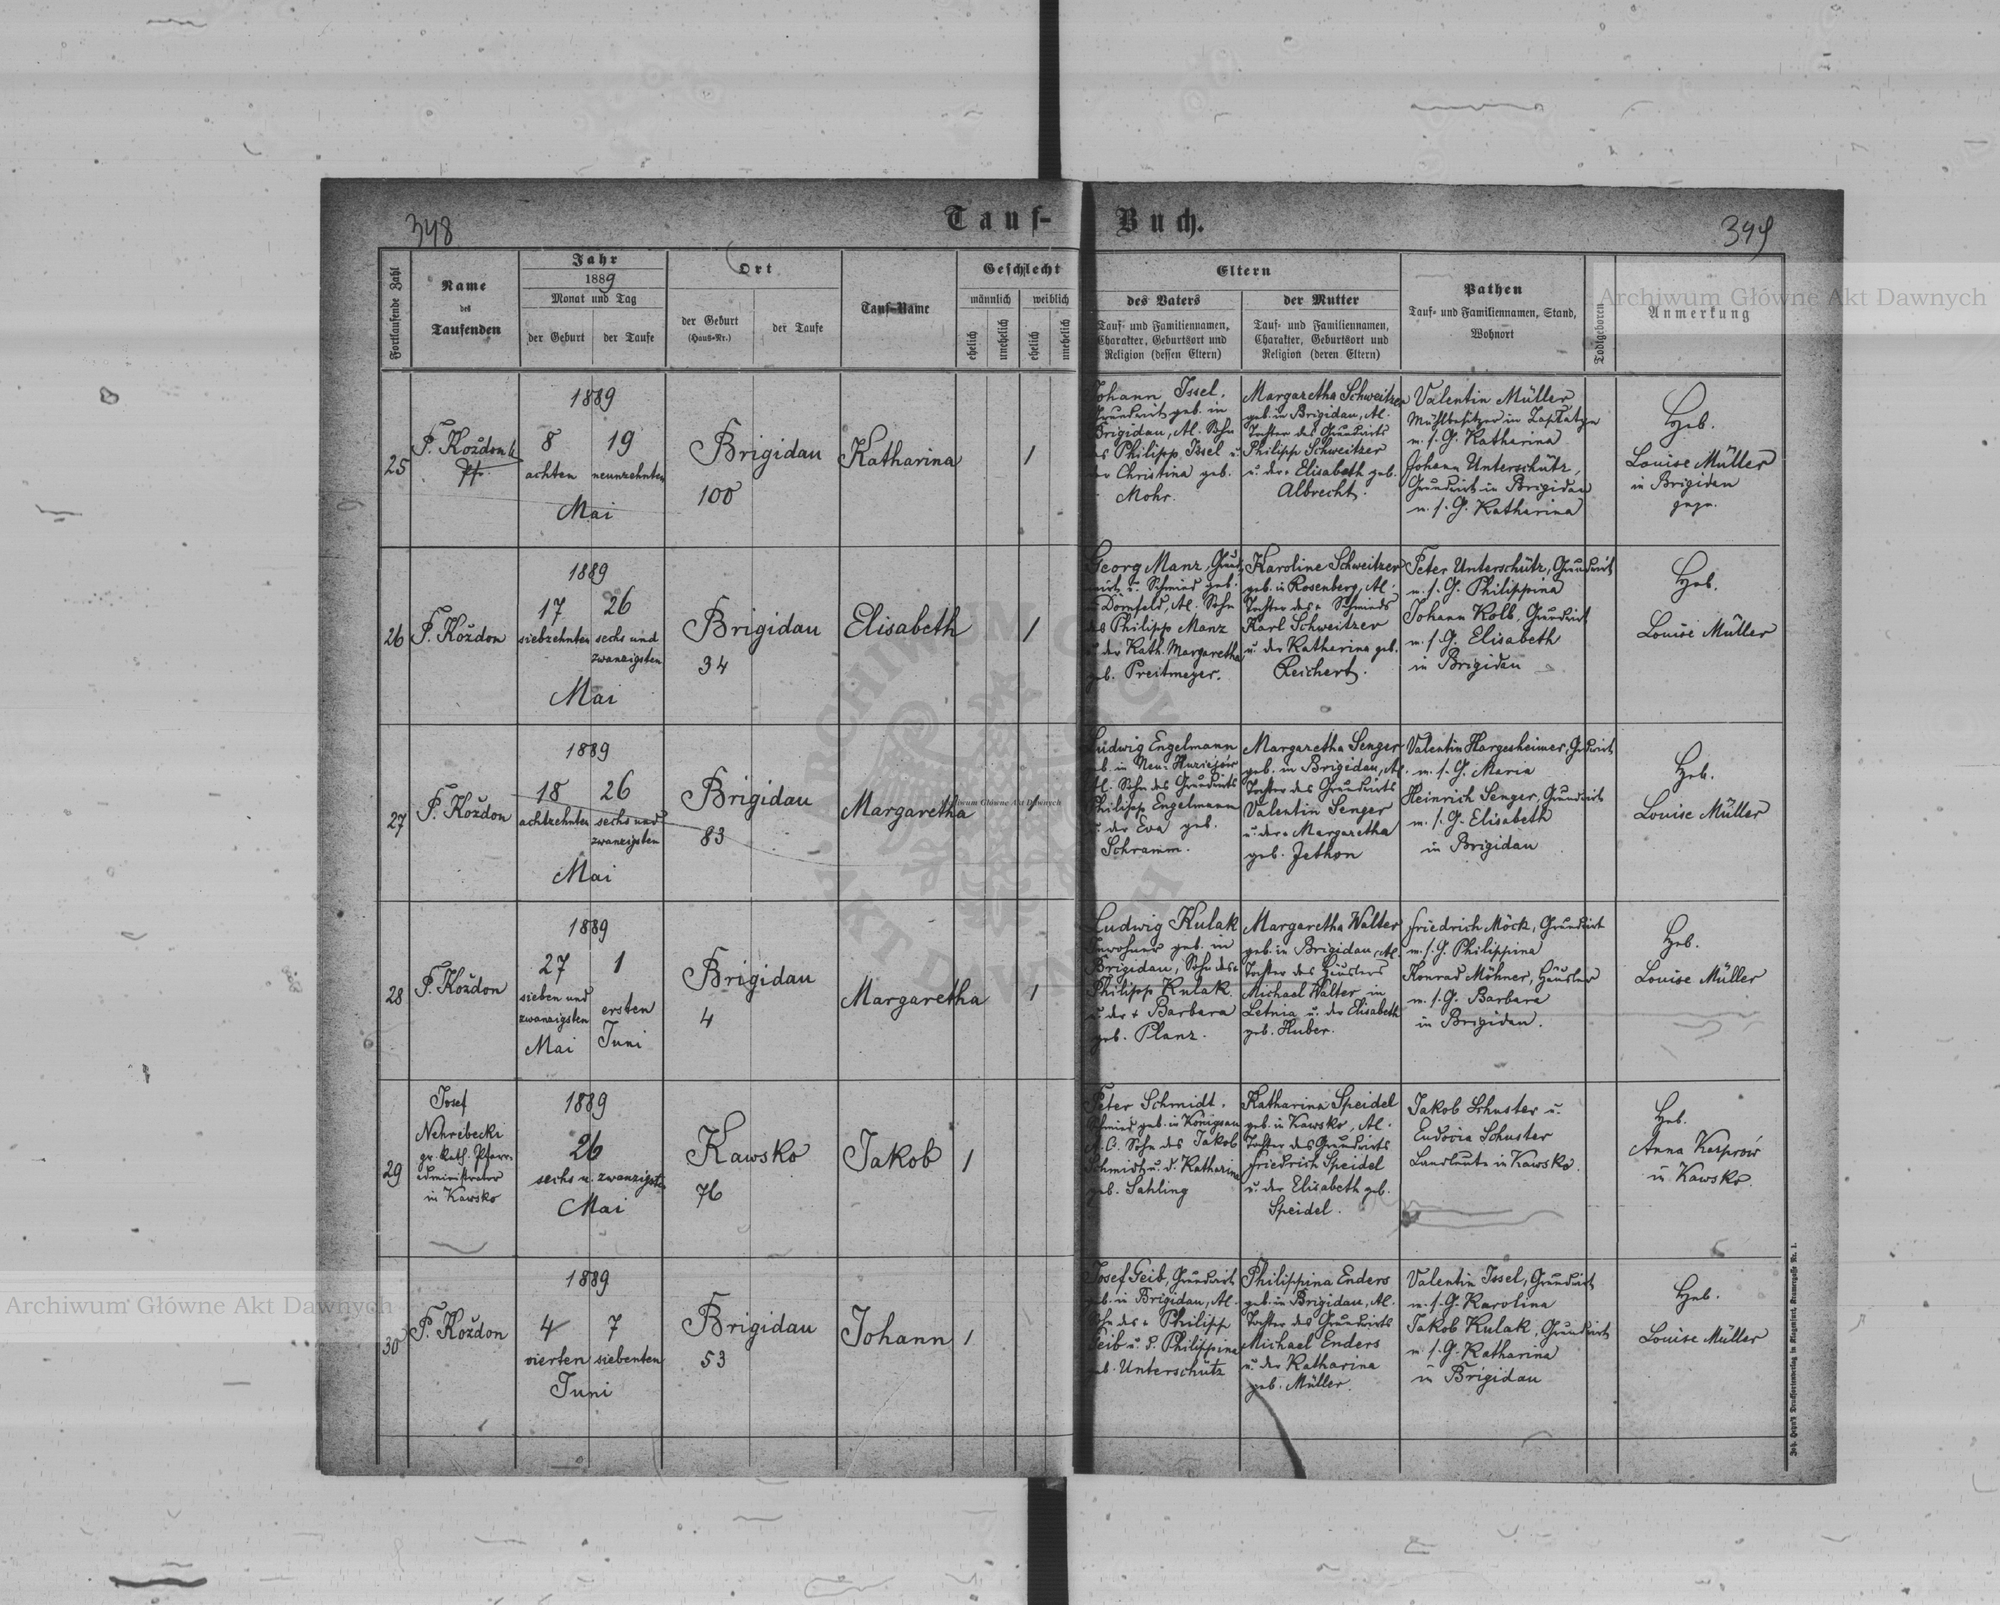 348
Tauf-
Buch.
399
Fortlaufende Zahl
Name
des
Taufenden
Jahr
1889
Monat und Tag
der Geburt
der Taufe
Ort
der Geburt
(Haus-Nr.)
der Taufe
Tauf-Name
Geschlecht
männlich
weiblich
ehelich
unehelich
ehelich
unehelich
Eltern
des Vaters
Tauf- und Familiennamen,
Charakter, Geburtsort und
Religion (dessen Eltern)
der Mutter
Tauf- und Familiennamen,
Charakter, Geburtsort und
Religion (deren Eltern)
Pathen
Tauf- und Familiennamen, Stand,
Wohnort
Todtgeboren
Anmerkung
Archiwum Główne Akt Dawnych
25
P. Koždon
1889
8
19
achten
neunzehnten
Mai
Brigidau
100
Katharina
1
Johann Issel,
Grundwirt geb. in
Brigidau, Al. Sohn
des Philipp Issel u.
der Christina geb.
Mohr.
Margaretha Schweitzer
geb. in Brigidau, Al.
Tochter des Grundwirts
Philipp Schweitzer
u. der Elisabeth geb.
Albrecht.
Valentin Müller
Mühlbesitzer in
m. s. G. Katharina
Johann Unterschütz,
Grundwirt in Brigidau
m. s. G. Katharina
Heb.
Louise Müller
in Brigidau
26
P. Koždon
1889
17
26
siebzehnten
sechs und
zwanzigsten
Mai
Brigidau
34
Elisabeth
1
Georg Manz, Grund-
wirt u. Schmied geb.
in Dornfeld, Al. Sohn
des Philipp Manz
u. der Kath. Margaretha
geb. Preitmeyer.
Karoline Schweitzer
geb. in Rosenberg, Al.
Tochter des + Schmieds
Karl Schweitzer
u. der Katharina geb.
Reichert.
Peter Unterschütz, Grundwirt
m. s. G. Philippina
Johann Kolb, Grundwirt
m. s. G. Elisabeth
in Brigidau
Heb.
Louise Müller
27
P. Koždon
1889
18
26
achtzehnten
sechs und
zwanzigsten
Mai
Brigidau
83
Margaretha
1
Ludwig Engelmann
geb. in Neu-
Al. Sohn des Grundwirts
Philipp Engelmann
u. der Eva geb.
Schramm.
Margaretha Senger
geb. in Brigidau, Al.
Tochter des Grundwirts
Valentin Senger
u. der + Margaretha
geb. Jethon
Valentin Hargesheimer, Grdwirt
m. s. G. Maria
Heinrich Senger, Grundwirt
m. s. G. Elisabeth
in Brigidau
Heb.
Louise Müller
28
P. Koždon
1889
27
1
sieben und
zwanzigsten
ersten
Mai
Juni
Brigidau
4
Margaretha
1
Ludwig Kulak
Inwohner geb. in
Brigidau, Sohn des +
Philipp Kulak
u. der + Barbara
geb. Planz.
Margaretha Walter
geb. in Brigidau, Al.
Tochter des Häuslers
Michael Walter in
Letnia u. der Elisabeth
geb. Huber.
Friedrich Möck, Grundwirt
m. s. G. Philippina
Konrad Möhner, Häusler
m. s. G. Barbara
in Brigidau.
Heb.
Louise Müller
29
Josef
Nehrebecki
gr. kath. Pfarr-
administrator
in Kawsko
1889
26
sechs u. zwanzigsten
Mai
Kawsko
76
Jakob
1
Peter Schmidt,
Schmied geb. in Königsau
A. C. Sohn des Jakob
Schmidt u. d. Katharina
geb. Sahling
Katharina Speidel
geb. in Kawsko, Al.
Tochter des Grundwirts
Friedrich Speidel
u. der Elisabeth geb.
Speidel.
Jakob Schuster u.
Eudocia Schuster
Landleute in Kawsko.
Heb.
Anna Kasprów
in Kawsko.
30
P. Koždon
1889
4
7
vierten
siebenten
Juni
Brigidau
53
Johann
1
Josef Geib, Grundwirt
geb. in Brigidau, Al.
Sohn des + Philipp
Geib u. d. Philippina
geb. Unterschütz
Philippina Enders
geb. in Brigidau, Al.
Tochter des Grundwirts
Michael Enders
u. der Katharina
geb. Müller.
Valentin Issel, Grundwirt
m. s. G. Karolina
Jakob Kulak, Grundwirt
m. s. G. Katharina
in Brigidau
Heb.
Louise Müller
Archiwum Główne Akt Dawnych
Archiwum Główne Akt Dawnych